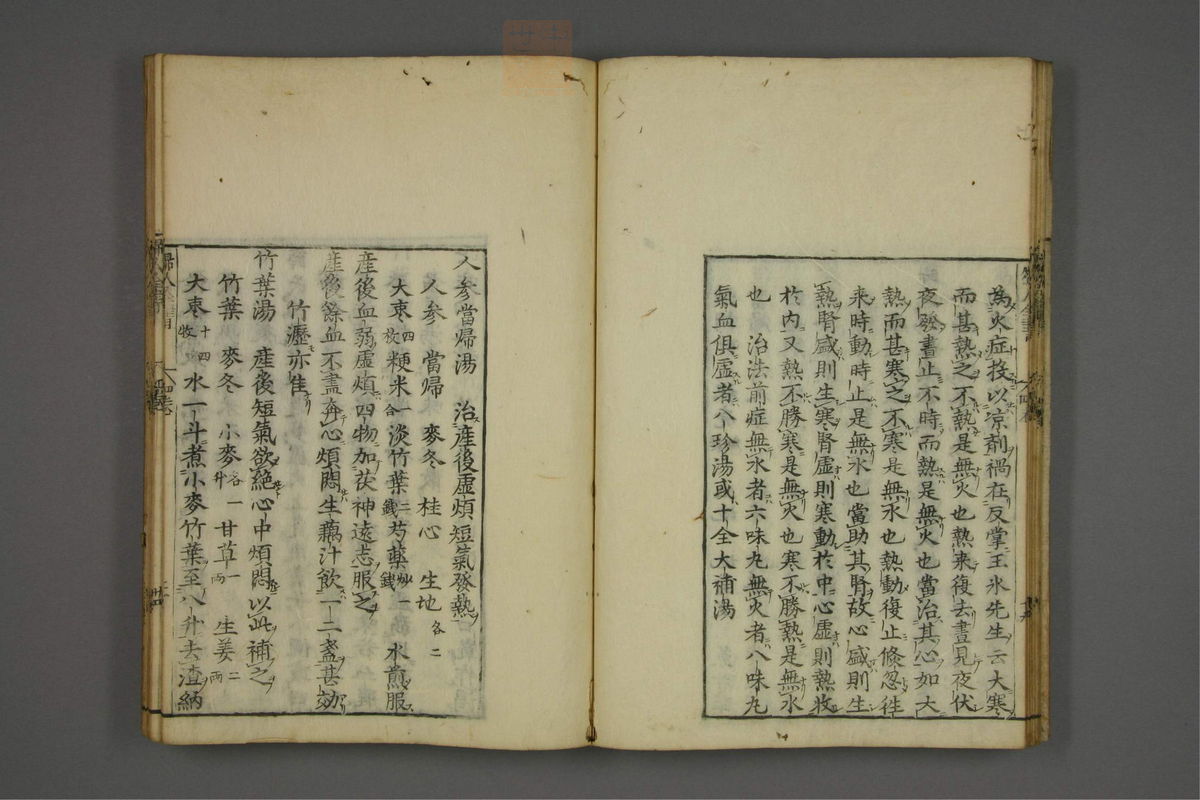 為火症投以凉剤禍在反掌王氷先生云大寒
而甚熱之不熱是無火也熱来復去晝見夜伏
夜發晝止不時而熱是無火也當治其心如大
熱而甚寒之不寒是無水也熱動復止倐忽徃
来時動時止是無水也當助其腎故心盛則生
熱腎盛則生寒腎虚則寒動於中心虚則熱收
於内又熱不勝寒是無火也寒不勝熱是無水
也 治法前症無水者六味丸無火者八味丸
氣血俱虚者八珍湯或十全大補湯
人参當歸湯 治産後虚煩短氣發熱
人参 當歸 麥冬 桂心 生地 各二
大枣四枚 粳米一合 淡竹葉二錢 芍藥炒一錢 水煎服
産後血弱虚煩四物加茯神遠志服之
産後餘血不盡奔心煩悶生藕汁飲一二盞甚効
竹瀝亦佳
竹葉湯 産後短氣欲絶心中煩悶以此補之
竹葉 麥冬 小麥各一升 甘草一兩 生姜二兩
大枣十四枚 水一斗煮小麥竹葉至八升去渣納